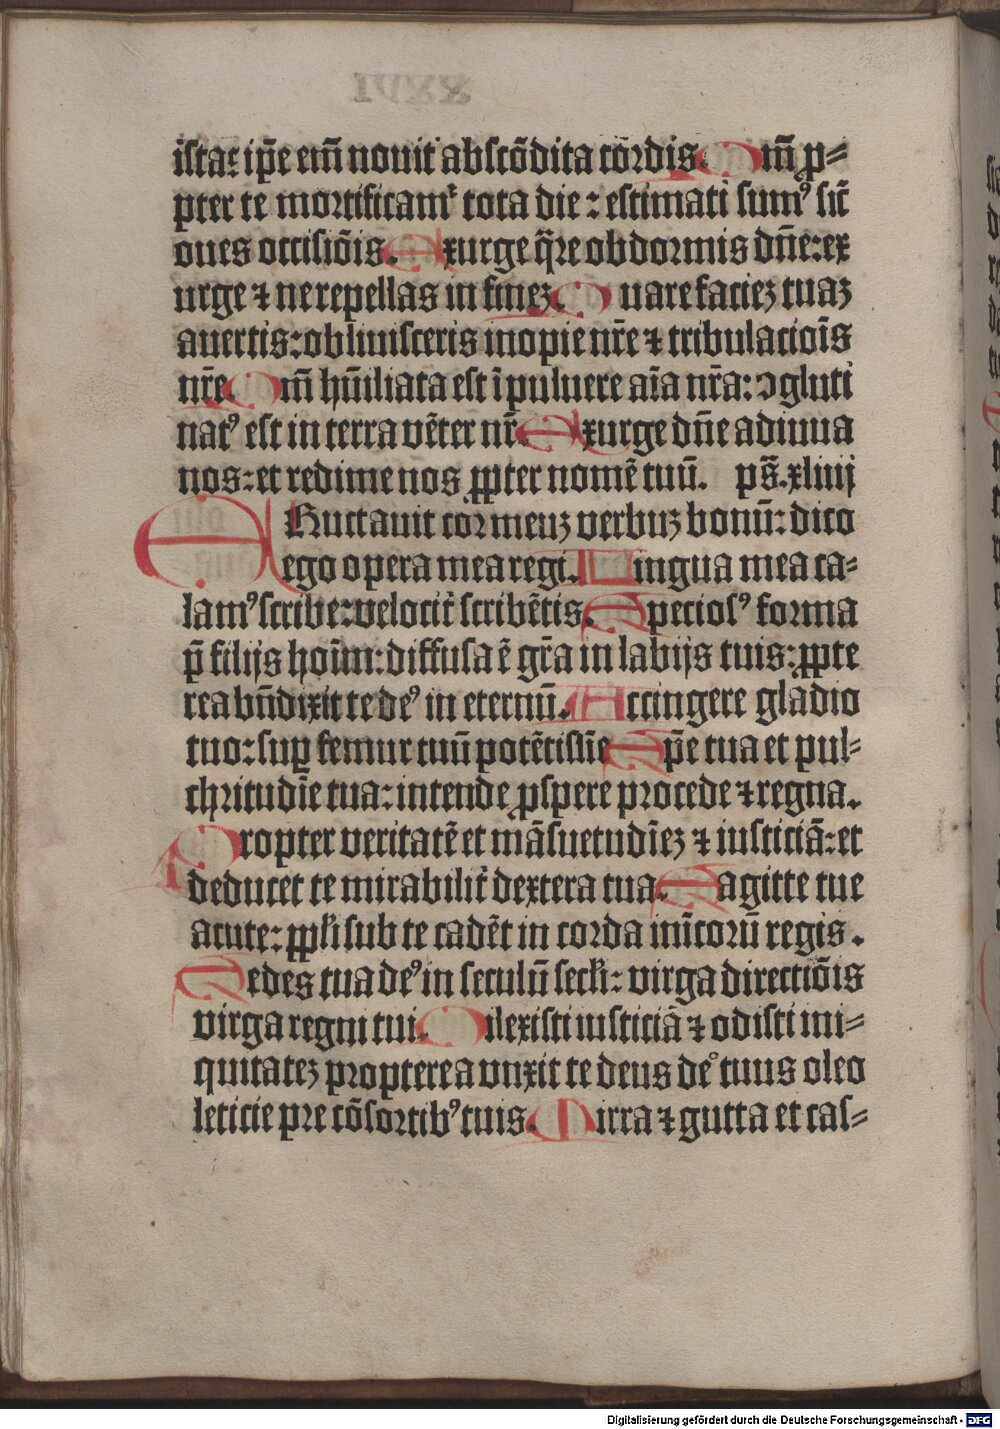 ista: ip̄e em̄ nouit abscōdita cordis. Qm̄ p-
pter te mortificamᷣ tota die : estimati sumꝰ sic̄
oues occisiōis. Exurge q̄re obdormis dn̄e: ex
urge ⁊ ne repellas in finez. Quare faciez tuaz
auertis: obliuisceris inopie nr̄e ⁊ tribulacioīs
nr̄e. Qm̄ hūiliata est ī puluere aīa nr̄a: ꝯgluti
natꝰ est in terra vēter nr̄. Exurge dn̄e adiuua
nos: et redime nos ꝓpter nomē tuū. ps̄. xliiij
ERuctauit cor meuz verbuz bonū: dico
ego opera mea regi. Lingua mea ca-
lamꝰ scribe: velocit̄ scribētis. Speciosꝰ forma
p̄ filijs hoīm: diffusa ē gr̄a in labijs tuis: ꝓpte
rea bn̄dixit te deꝰ in eternū. Accingere gladio
tuo: suꝑ femur tuū potētissīe Sp̄e tua et pul-
chritudīe tua: intende ꝓspere procede ⁊ regna.
Propter veritatē et māsuetudīez ⁊ iusticiā: et
deducet te mirabilit̄ dextera tua. Sagitte tue
acute: ppl̄i sub te cadēt in corda inīcorū regis.
Sedes tua deꝰ in seculū secl̄i: virga directiōis
virga regni tui. Dilexisti iusticiā ⁊ odisti ini-
quitatez propterea vnxit te deus deꝰ tuus oleo
leticie pre cōsortibꝰ tuis. Mirra ⁊ gutta et cas-
Digitalisierung gefördert durch die Deutsche Forschungsgemeinschaft - DFG